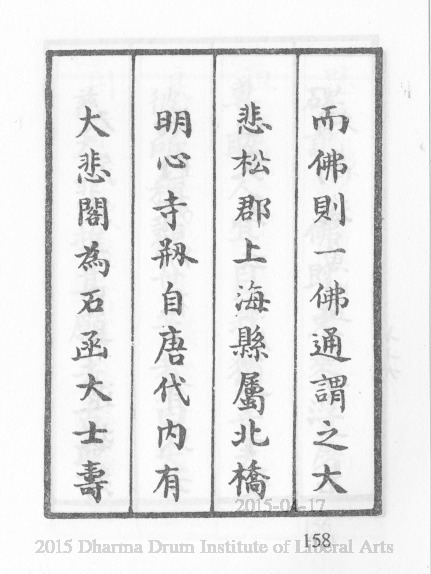 而佛則一佛通謂之大
悲松郡上海縣屬北橋
明心寺剏自唐代内有
大悲閣為石函大士壽
2015-04-17
158
2015 Dharma Drum Institute of Liberal Arts